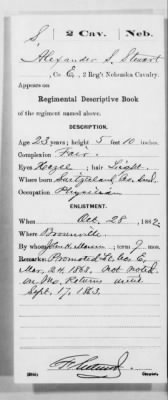 S, 2 Cav. Neb.
Alexander S. Stewart
Co. E, 2 Reg't Nebraska Cavalry.
Appears on
Regimental Descriptive Book
of the regiment named above.
DESCRIPTION.
Age 23 years; height 5 feet 10 inches.
Complexion Fair.
Eyes Hazel; hair Light.
Where born Switzerland, Co., Ind.
Occupation Physician
ENLISTMENT.
When Oct. 28, 1862.
Where Brownville
By whom John H. ; term 9 mos.
Remarks: Promoted Co. E,
Mar. 24, 1863. Not noted
on Mo. Returns until
Sept. 17, 1863.